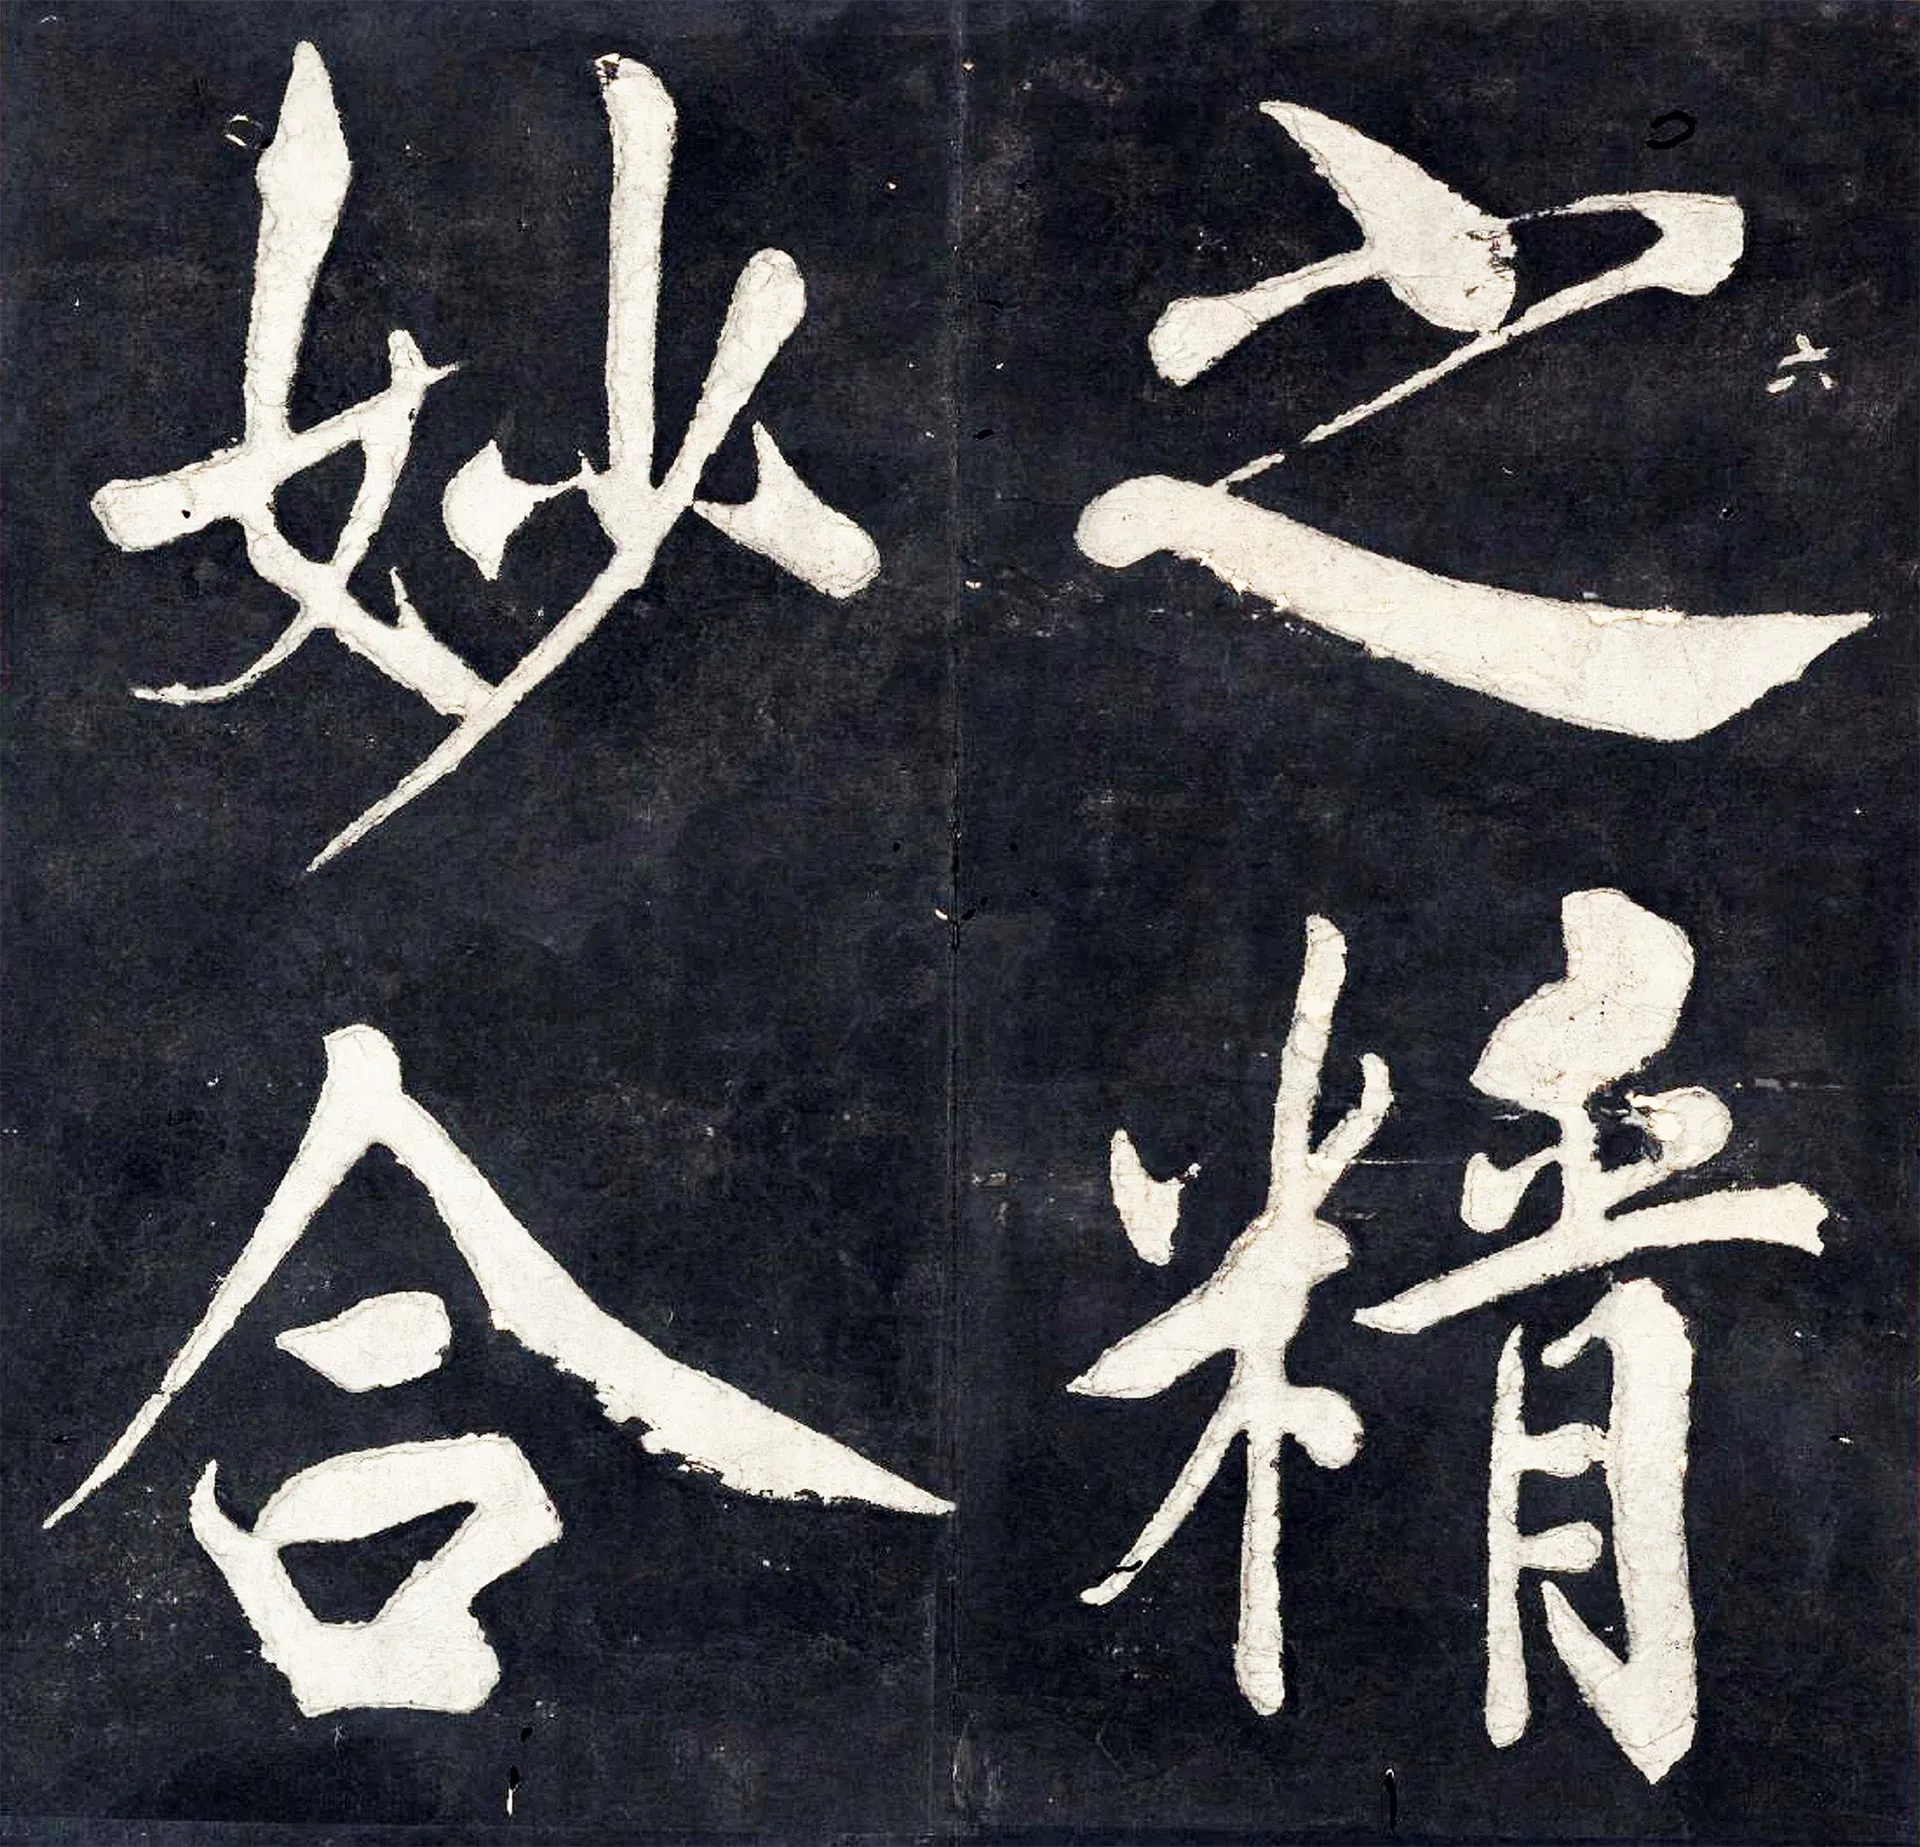 之精
六
妙合